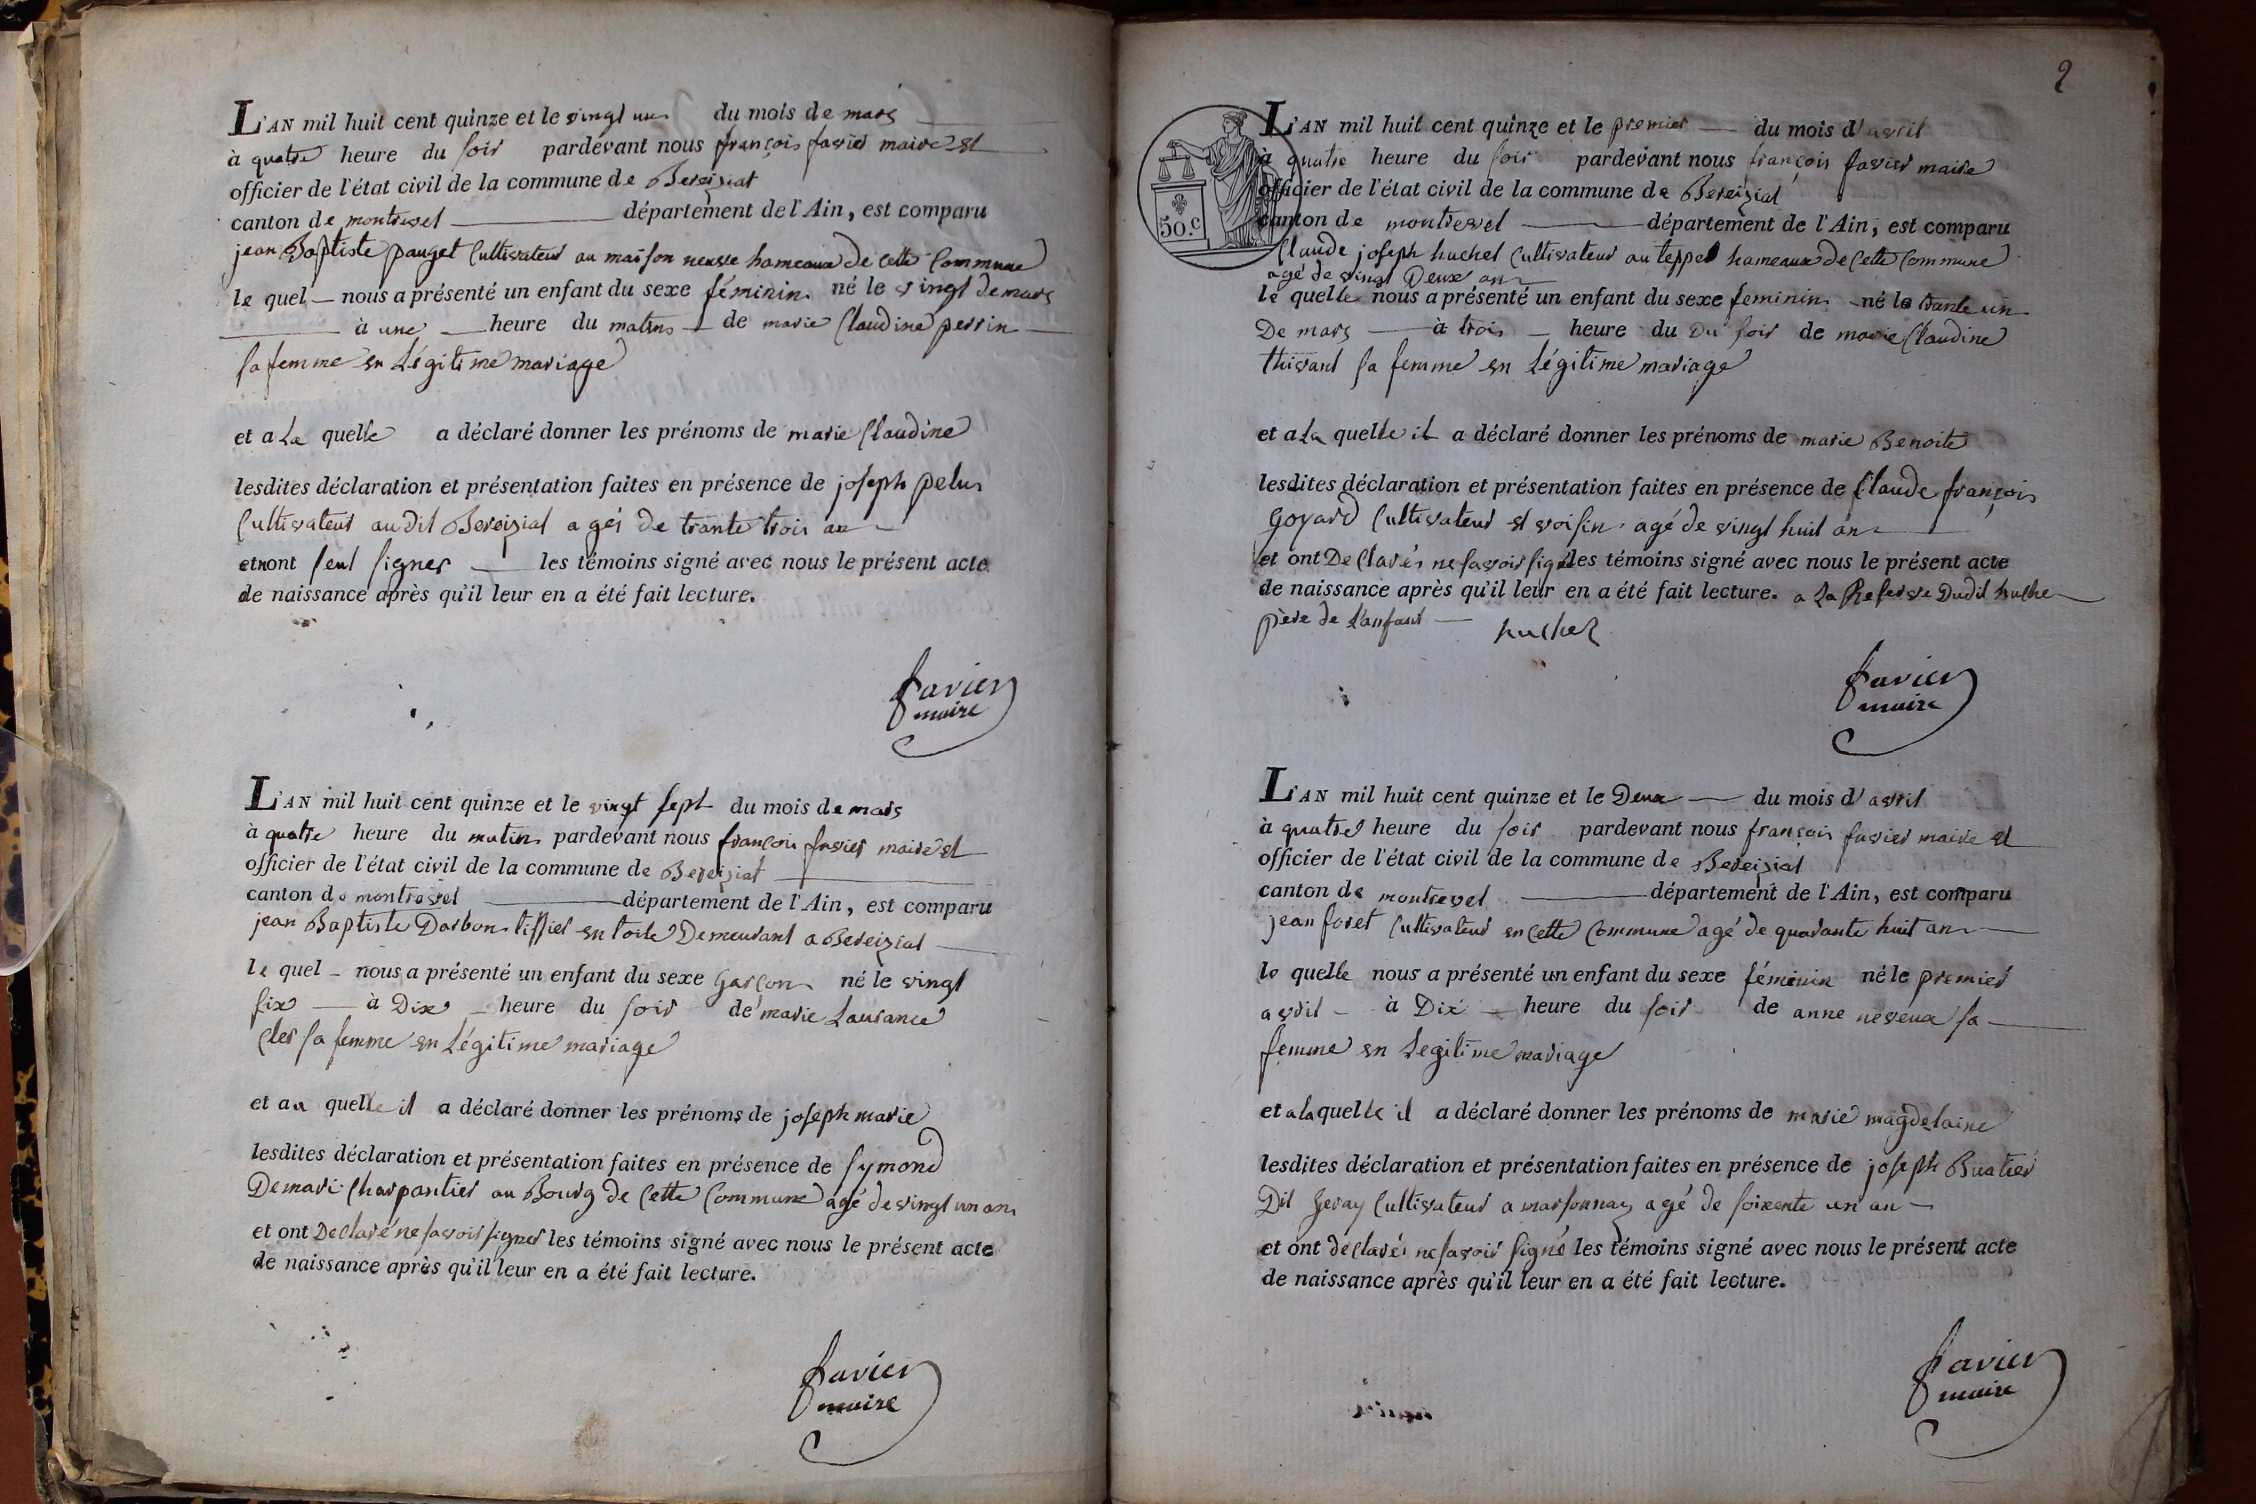 L'AN mil huit cent quinze et le vingt un du mois de mars
à quatre heure du soir pardevant nous françois favier maire et
officier de l'état civil de la commune de Bereiziat
canton de montrevel département de l'Ain, est comparu
jean Baptiste pauget Cultivateur au maison neuve hameaux de cette Commune
le quel nous a présenté un enfant du sexe féminin né le vingt de mars
à une heure du matins de marie Claudine perrin
sa femme en Légitime mariage
et a La quelle a déclaré donner les prénoms de marie Claudine
lesdites déclaration et présentation faites en présence de joseph pelus
Cultivateur audit Bereiziat agés de trante trois an
et ont seul signer les témoins signé avec nous le présent acte
de naissance après qu'il leur en a été fait lecture.
favier
maire
L'AN mil huit cent quinze et le vingt sept du mois de mars
à quatre heure du matins pardevant nous françois favier maire et
officier de l'état civil de la commune de Bereiziat
canton de montrevel département de l'Ain, est comparu
jean Baptiste Darbon tissier en toile Demeurant a Bereiziat
le quel nous a présenté un enfant du sexe Garçon né le vingt
six à Dix heure du soir de marie Laurance
Cler sa femme en Légitime mariage
et au quelle il a déclaré donner les prénoms de joseph marie
lesdites déclaration et présentation faites en présence de symond
Demari Charpantier au Bourg de Cette Commune agé de vingt un an
et ont Declaré ne savoir signer les témoins signé avec nous le présent acte
de naissance après qu'il leur en a été fait lecture.
favier
maire
2
50.c
L'AN mil huit cent quinze et le premier du mois d'avril
à quatre heure du soir pardevant nous françois favier maire
officier de l'état civil de la commune de Bereiziat
canton de montrevel département de l'Ain, est comparu
Claude joseph huchet Cultivateur au teppes hameaux de Cette Commune
agé de vingt Deux an
le quelle nous a présenté un enfant du sexe feminin né le trante un
De mars à trois heure du Du soir de marie Claudine
thivant sa femme en Légitime mariage
et a La quelle il a déclaré donner les prénoms de marie Benoite
lesdites déclaration et présentation faites en présence de Claude françois
Goyard Cultivateur et voisin agé de vingt huit an
et ont Declarés ne savoir signé les témoins signé avec nous le présent acte
de naissance après qu'il leur en a été fait lecture. a La Reserve Dudit huchet
père de L'anfant huchet
favier
maire
L'AN mil huit cent quinze et le Deux du mois d'avril
à quatre heure du soir pardevant nous françois favier maire et
officier de l'état civil de la commune de Bereiziat
canton de montrevel département de l'Ain, est comparu
jean foret Cultivateur en cette Commune agé de quarante huit an
le quelle nous a présenté un enfant du sexe féminin né le premier
avril à Dix heure du soir de anne neveux sa
femme en Legitime mariage
et a la quelle il a déclaré donner les prénoms de marie magdelaine
lesdites déclaration et présentation faites en présence de joseph Buatier
Dit Geray Cultivateur a marsonnaz agé de soixente un an
et ont déclarés ne savoir signé les témoins signé avec nous le présent acte
de naissance après qu'il leur en a été fait lecture.
favier
maire